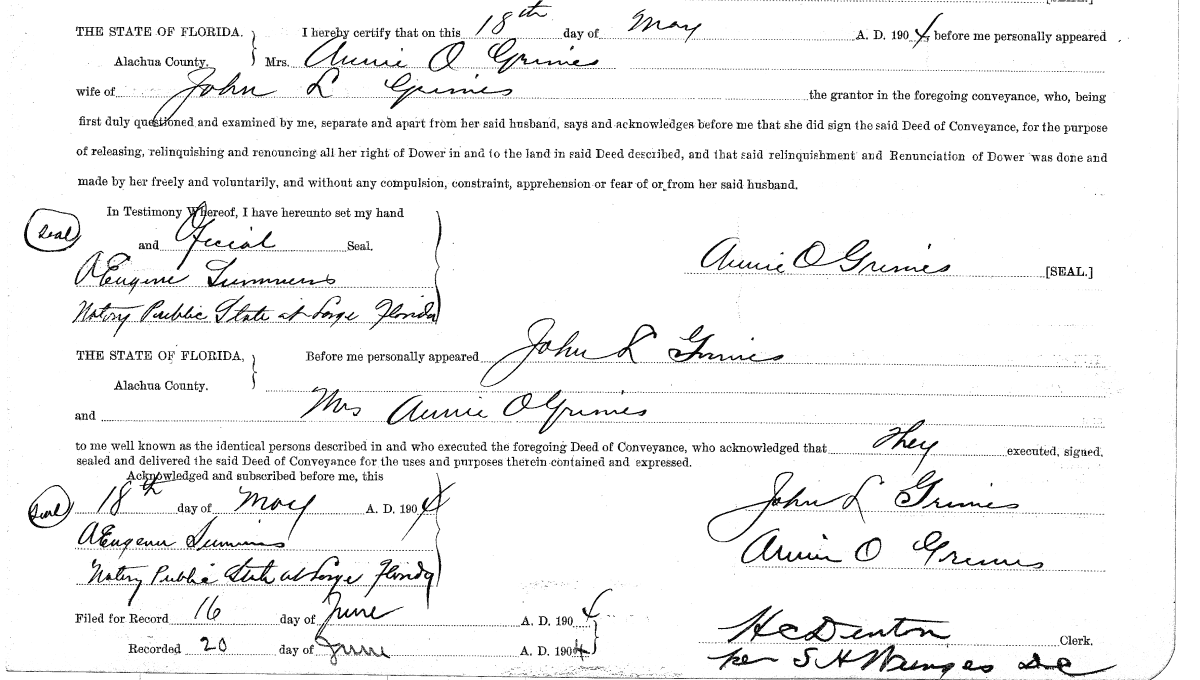 [SEAL.]
THE STATE OF FLORIDA. } I hereby certify that on this 18th day of May A. D. 1904, before me personally appeared
Alachua County. } Mrs. Annie O Grimes
wife of John L Grimes the grantor in the foregoing conveyance, who, being
first duly questioned and examined by me, separate and apart from her said husband, says and acknowledges before me that she did sign the said Deed of Conveyance, for the purpose
of releasing, relinquishing and renouncing all her right of Dower in and to the land in said Deed described, and that said relinquishment and Renunciation of Dower was done and
made by her freely and voluntarily, and without any compulsion, constraint, apprehension or fear of or from her said husband.
In Testimony Whereof, I have hereunto set my hand
Seal and Official Seal.
Eugene Annie O Grimes [SEAL.]
Notary Public State at Large Florida
THE STATE OF FLORIDA, } Before me personally appeared John L Grimes
Alachua County.
and Mrs Annie O Grimes
to me well known as the identical persons described in and who executed the foregoing Deed of Conveyance, who acknowledged that They executed, signed,
sealed and delivered the said Deed of Conveyance for the uses and purposes therein contained and expressed.
Acknowledged and subscribed before me, this
Seal 18th day of May A. D. 1904 John L Grimes
Eugene Annie O Grimes
Notary Public State at Large Florida
Filed for Record 16 day of June A. D. 1904
H C Denton Clerk.
Recorded 20 day of June A. D. 1904
per S H D C